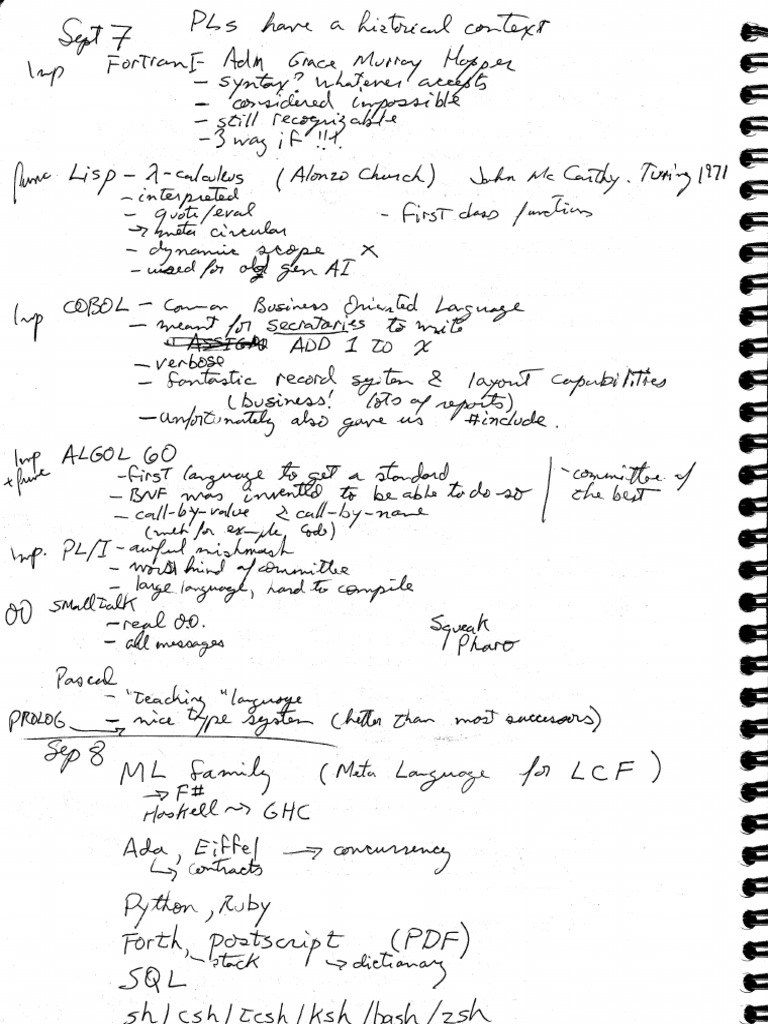 Sept 7 PLs have a historical context
Imp Fortran I - Adm Grace Murray Hopper
- syntax? whatever accepts
- considered impossible
- still recognizable
- 3 way if !!!
func Lisp - λ-calculus (Alonzo Church) John McCarthy. Turing 1971
- interpreted
- quote/eval - First class functions
→ meta circular
- dynamic scope X
- used for old gen AI
Imp COBOL - Common Business Oriented Language
- meant for secretaries to write
ASSIGN ADD 1 TO X
- verbose
- fantastic record system & layout capabilities
(business! lots of reports)
- unfortunately also gave us #include.
Imp + func ALGOL 60
- first language to get a standard - committee of
- BNF was invented to be able to do so the best
- call-by-value & call-by-name
(meth for example, code)
Imp. PL/I - awful mishmash
- worst kind of committee
- large language, hard to compile
OO Smalltalk
- real O.O. Squeak
- all messages Pharo
Pascal
- "teaching" language
PROLOG - nice type system (better than most successors)
Sep 8
ML family (Meta Language for LCF)
→ F#
Haskell ~> GHC
Ada, Eiffel → concurrency
↳ contracts
Python, Ruby
Forth, postscript (PDF)
- stack → dictionary
SQL
sh/csh/tcsh/ksh/bash/zsh